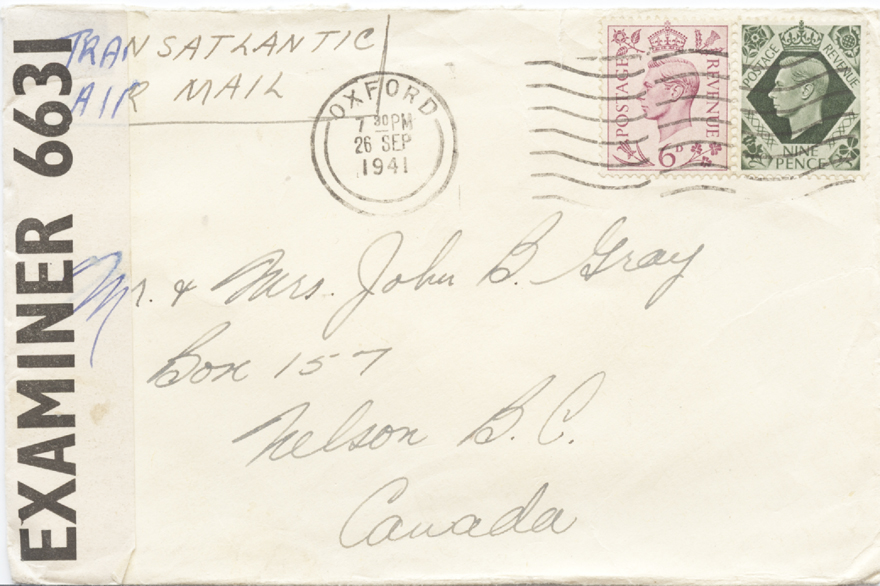 EXAMINER 6631
TRANSATLANTIC
AIR MAIL
OXFORD
7 30 PM
26 SEP
1941
POSTAGE REVENUE
6D
POSTAGE REVENUE
NINE
PENCE
Mr. & Mrs. John B. Gray
Box 157
Nelson B. C.
Canada